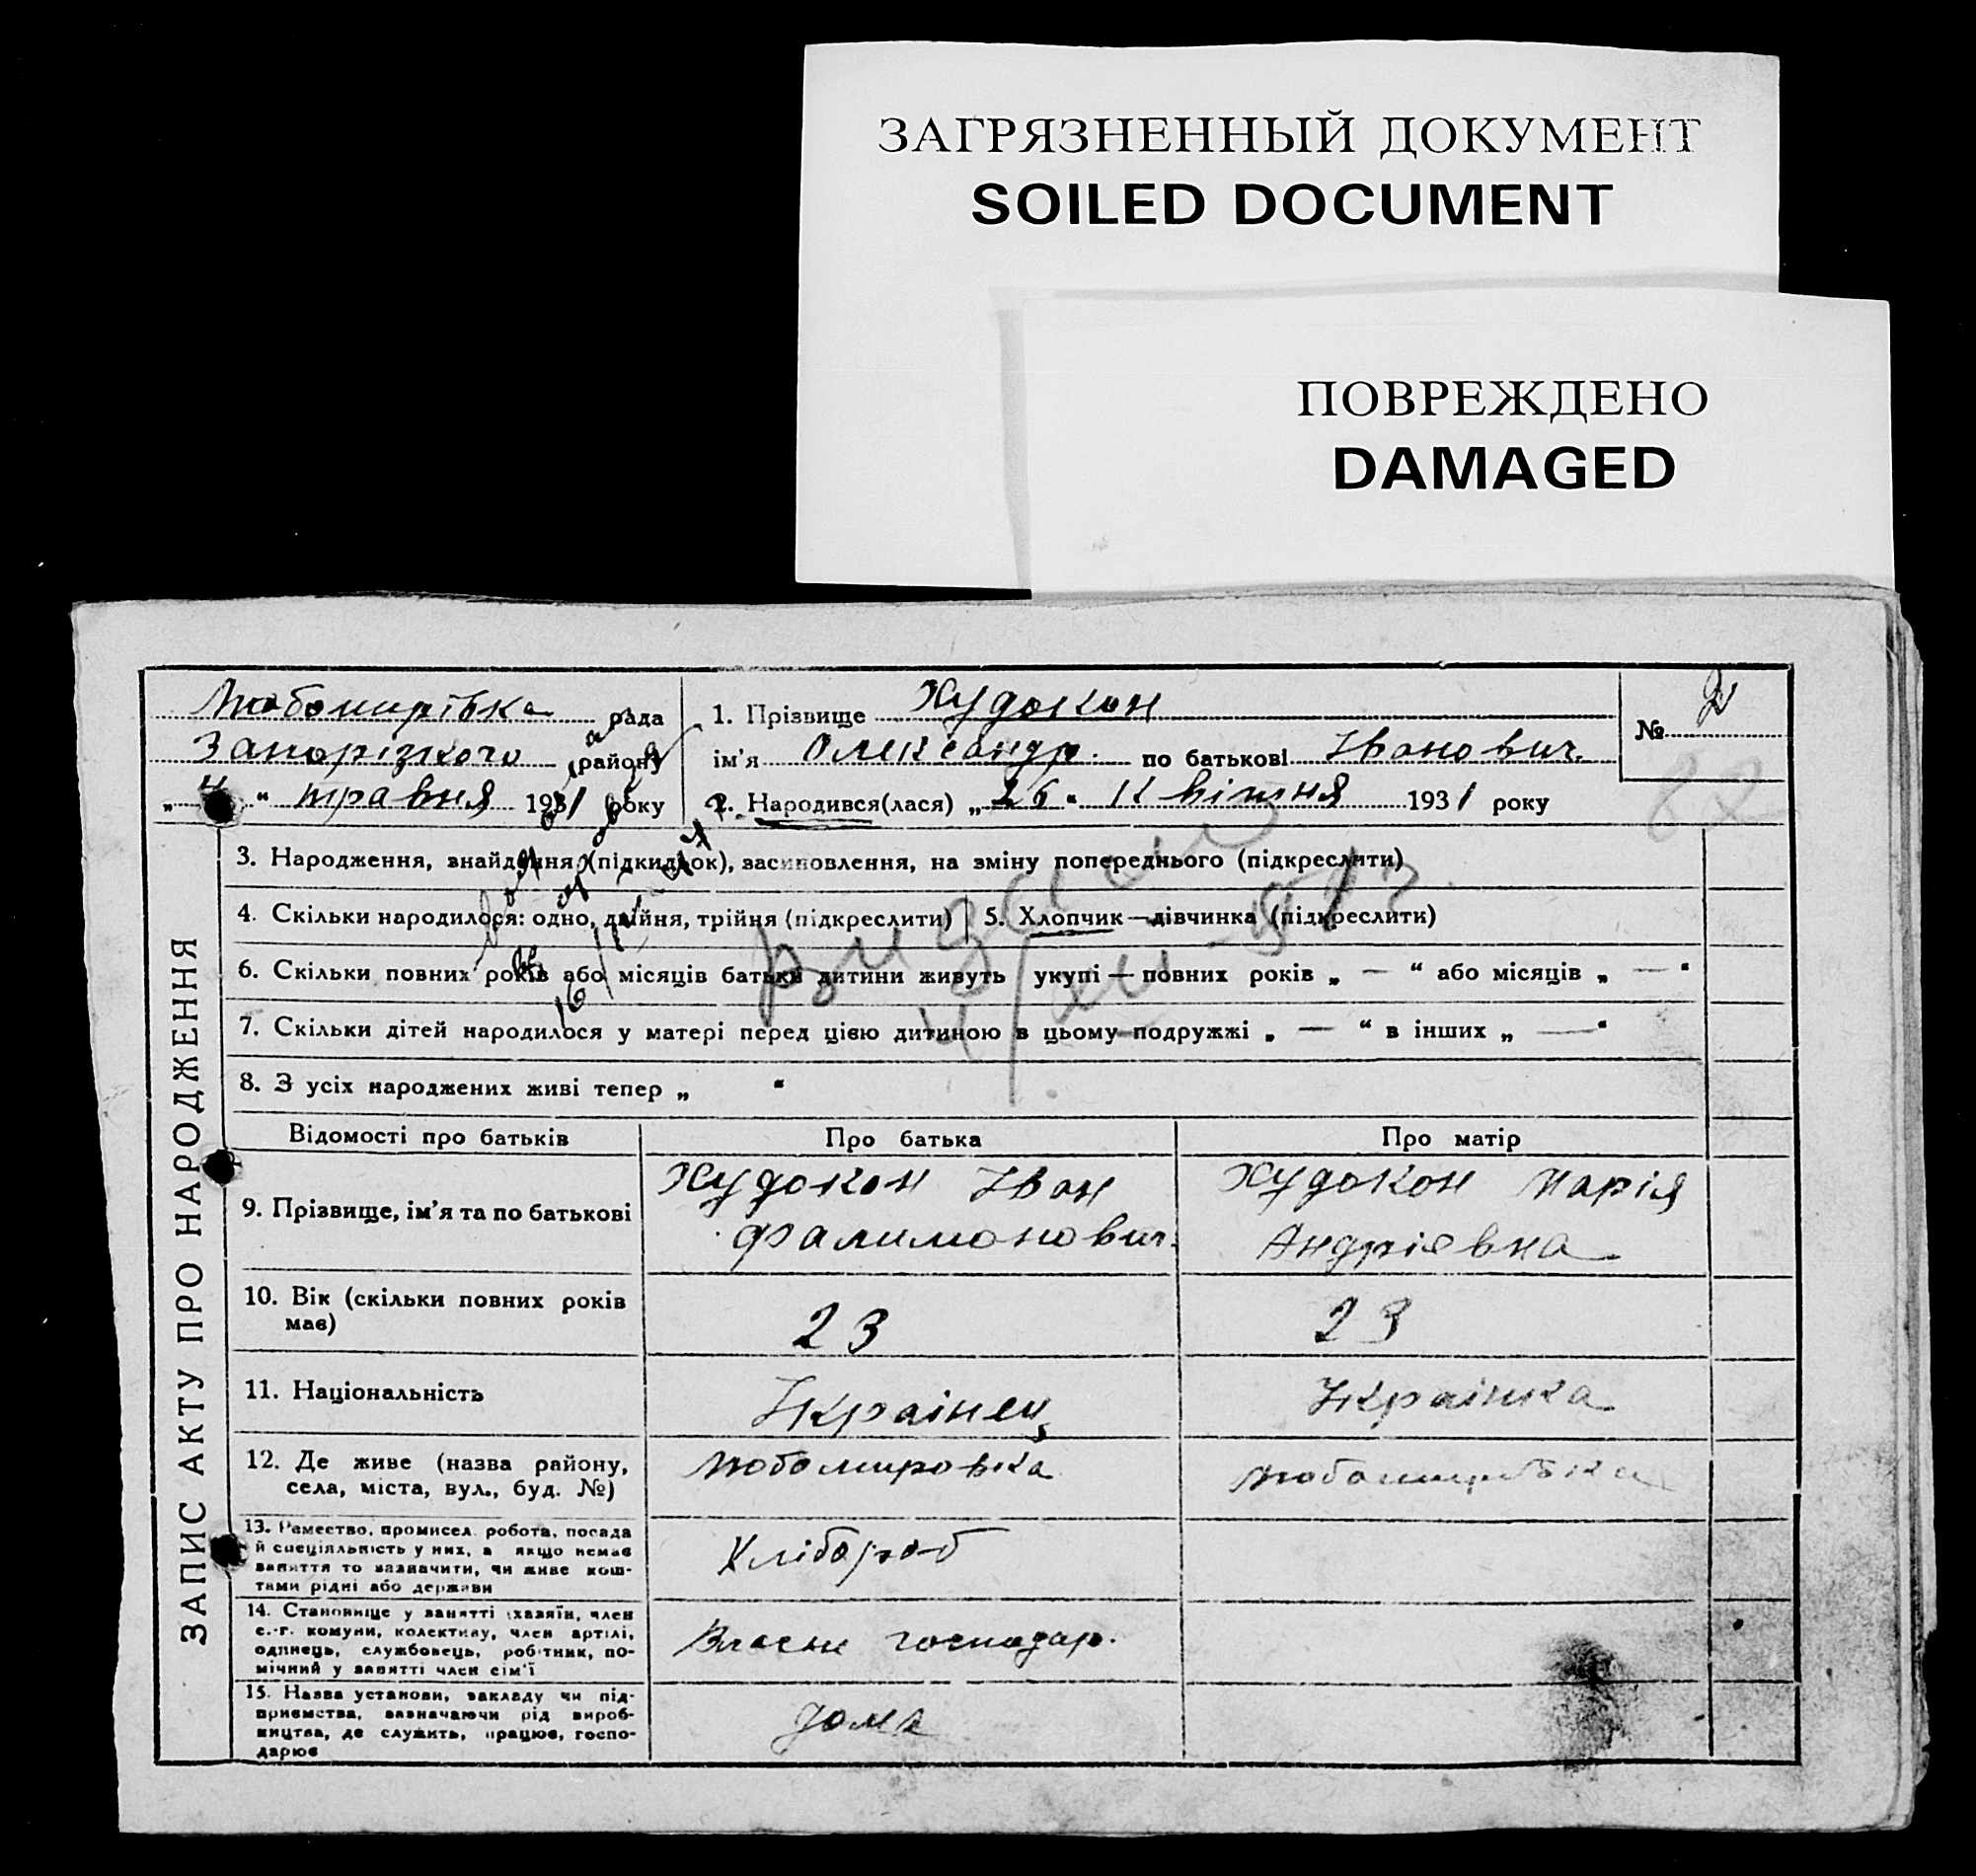 ЗАГРЯЗНЕННЫЙ ДОКУМЕНТ
SOILED DOCUMENT
ПОВРЕЖДЕНО
DAMAGED
ЗАПИС АКТУ ПРО НАРОДЖЕННЯ
Любомирівка рада
Запорізкого району
„ 4 “ травня 1931 року
1. Прізвище Худокон
ім'я Олександр. по батькові Іванович.
№ 2
82
2. Народився(лася) „ 26 “ Квітня 1931 року
3. Народження, знайдення (підкидьок), засиновлення, на зміну попереднього (підкреслити)
4. Скільки народилося: одно, двійня, трійня (підкреслити) 5. Хлопчик — дівчинка (підкреслити)
6. Скільки повних років або місяців батьки дитини живуть укупі — повних років „ — “ або місяців „ — “
7. Скільки дітей народилося у матері перед цією дитиною в цьому подружжі „ — “ в інших „ — “
8. З усіх народжених живі тепер „ “
Відомості про батьків Про батька Про матір
9. Прізвище, ім'я та по батькові
Худокон Іван
Фалимонович.
Худокон Марія
Андріевна
10. Вік (скільки повних років
має)
23
23
11. Національність
Украінец
Украінка
12. Де живе (назва району,
села, міста, вул., буд. №)
Любомировка
Любомирівка
13. Рамество, промисел, робота, посада
й спеціяльність у них, а якщо немає
заняття то зазначити, чи живе кош-
тами рідні або держави
Хлібороб
14. Становище у занятті (хазяїн, член
с.-г. комуни, колективу, член артілі,
одинець, службовець, робітник, по-
мічний у занятті член сім'ї
Власне господар.
15. Назва установи, закладу чи під-
приємства, зазначаючи рід вироб-
ництва, де служить, працює, госпо-
дарює
дома